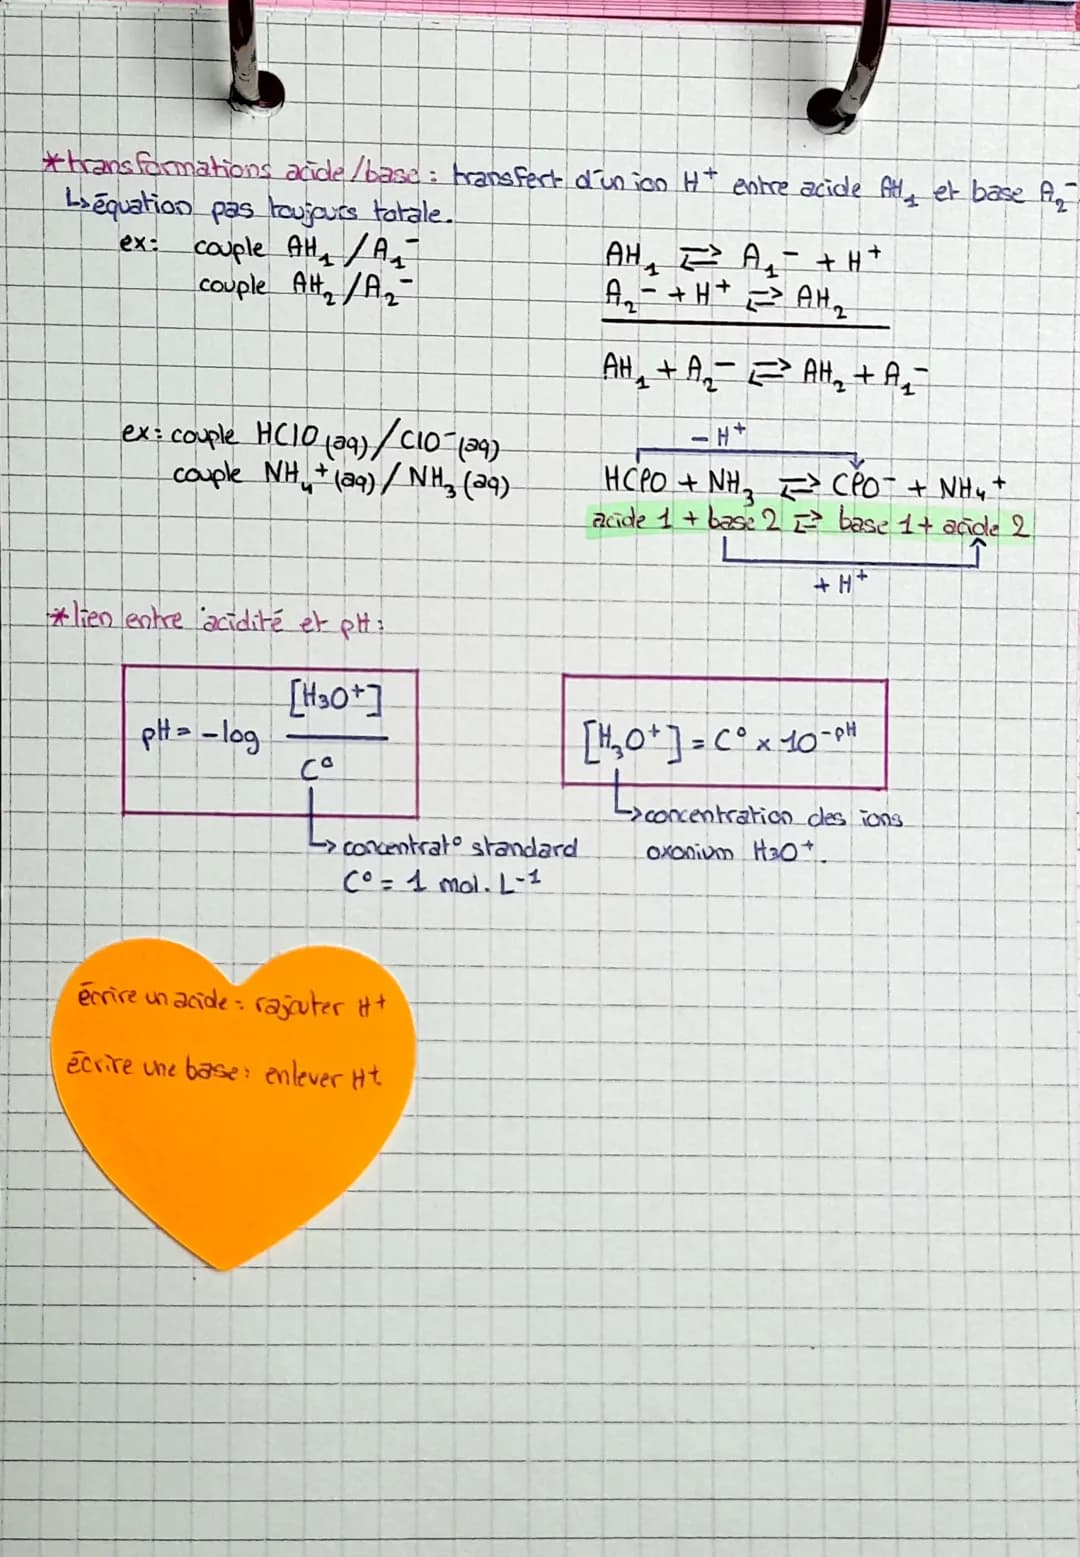 *transformations acide/base : transfert d'un ion H⁺ entre acide AH₁ et base A₂⁻
↳ équation pas toujours totale.
ex: couple AH₁/A₁⁻
couple AH₂/A₂⁻
AH₁ ⇄ A₁⁻ + H⁺
A₂⁻ + H⁺ ⇄ AH₂
AH₁ + A₂⁻ ⇄ AH₂ + A₁⁻
ex: couple HClO (aq)/ClO⁻(aq)
couple NH₄⁺(aq)/NH₃(aq)
- H⁺
HClO + NH₃ ⇄ ClO⁻ + NH₄⁺
acide 1 + base 2 ⇄ base 1 + acide 2
+ H⁺
*lien entre acidité et pH :
pH = -log [H₃O⁺]
C°
↳ concentrat° standard
C° = 1 mol.L-1
[H₃O⁺] = C° × 10⁻ᵖᴴ
↳ concentration des ions
oxonium H₃O⁺.
écrire un acide : rajouter H+
écrire une base : enlever H+